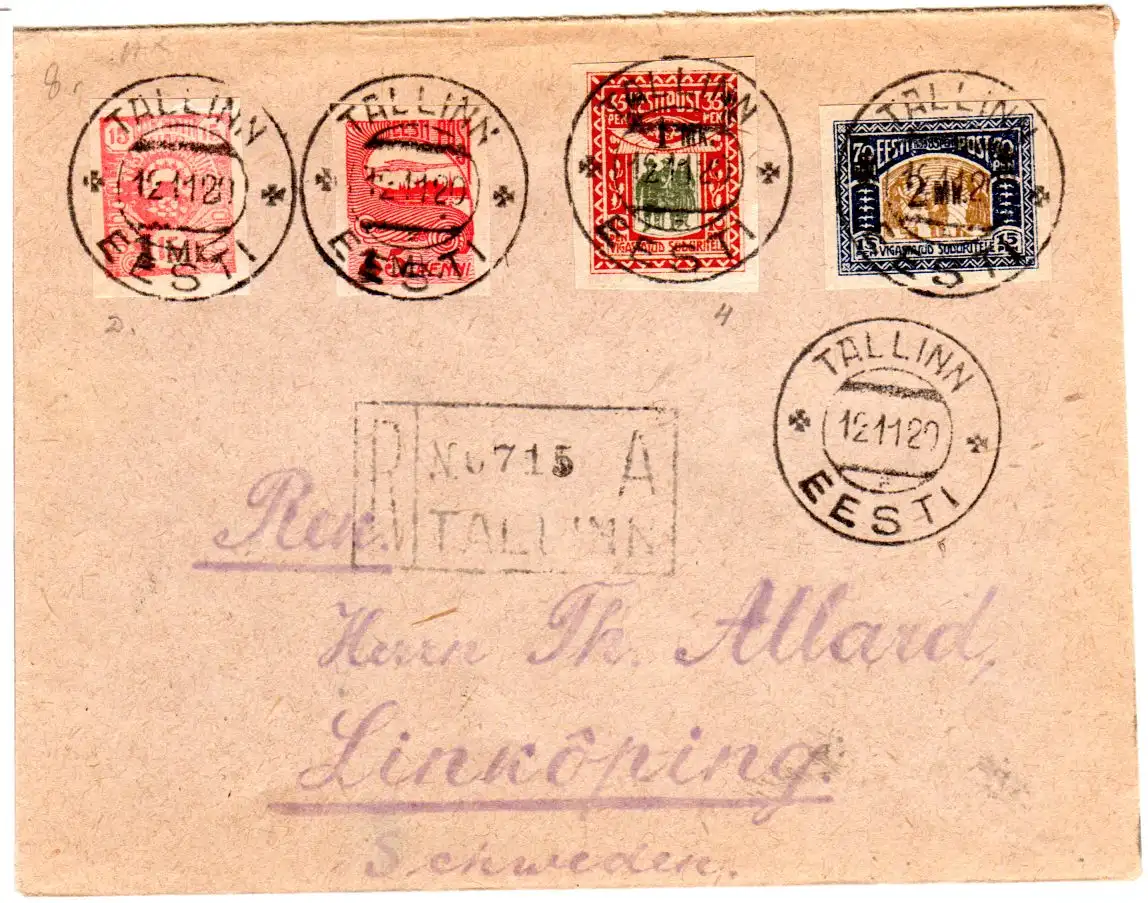 8
TALLINN
12.11.20
EESTI
15
1 Mk.
TALLINN
12.11.20
EESTI
EESTI
5 PENNI
1 Mk.
TALLINN
12.11.20
EESTI
35 EESTI POST 35
1 MK.
VIGASTATUD SÕDURITELE
TALLINN
12.11.2
EESTI
70 EESTI POST 70
2 MK.
15 VIGASTATUD SÕDURITELE 15
2.
4
TALLINN
12.11.20
EESTI
R No 715 A
TALLINN
Rek.
Herrn Th. Allard,
Linköping.
Schweden.